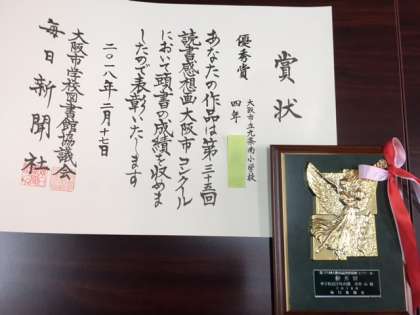 賞状
優秀賞
大阪市立九条南小学校
四年
あなたの作品は第三十五回
読書感想画大阪市コンクール
において頭書の成績を収めま
したので表彰いたします
二〇一八年二月十七日
大阪市学校図書館協議会
毎日新聞社